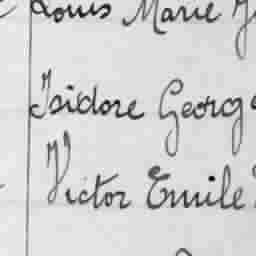 Louis Marie
Isidore Georg
Victor Emile